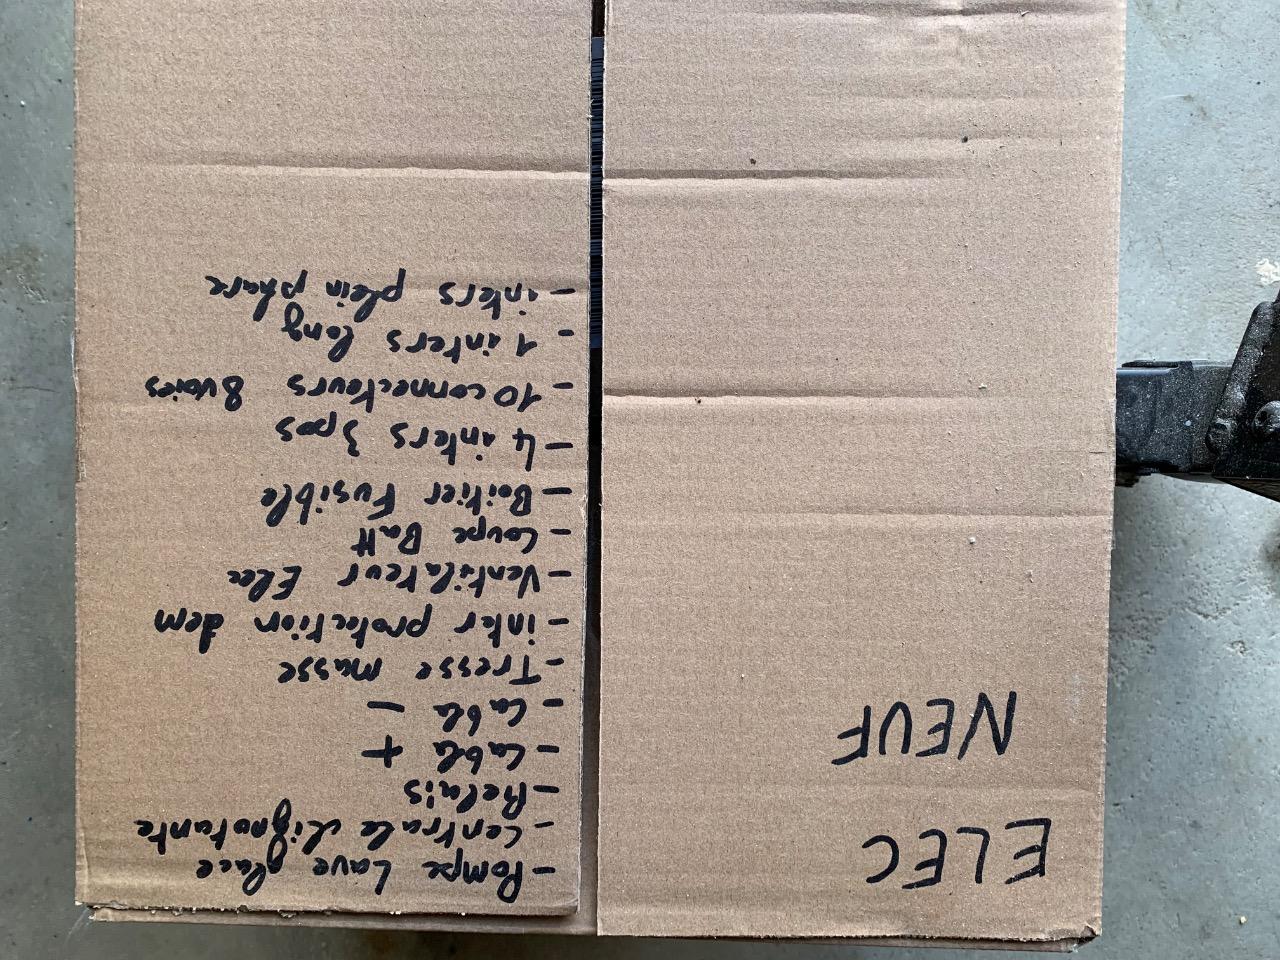 ELEC
NEUF
- Pompe Lave glace
- Centrale clignotante
- Relais
- Cable +
- Cable -
- Tresse masse
- inter protection dem
- Ventilateur Elec
- Coupe Batt
- Boitier Fusible
- 4 inters 3 pos
- 10 connecteurs 8 voies
- 1 inters long
- inters plein phare